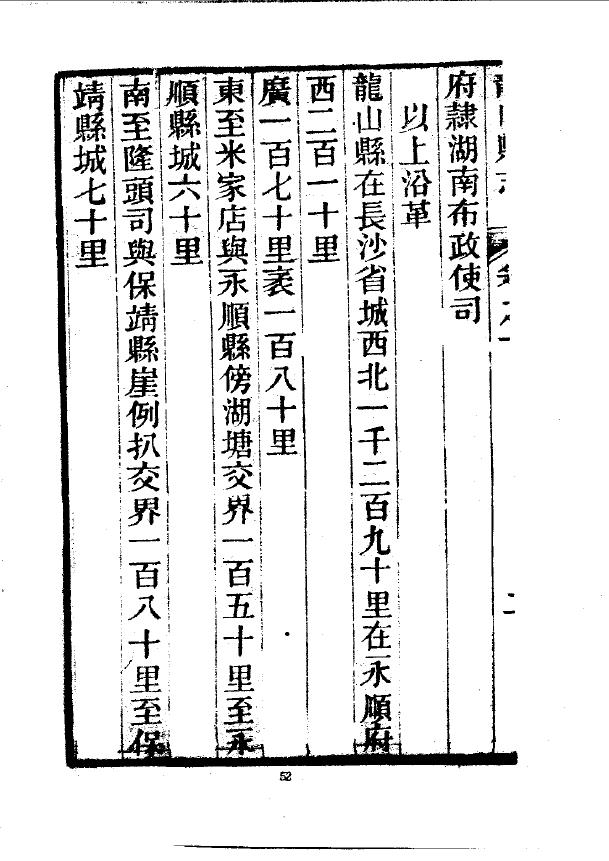 龍山縣志 卷之一 二
府隸湖南布政使司
以上沿革
龍山縣在長沙省城西北一千二百九十里在永順府
西二百一十里
廣一百七十里袤一百八十里
東至米家店與永順縣傍湖塘交界一百五十里至永
順縣城六十里
南至隆頭司與保靖縣崖例扒交界一百八十里至保
靖縣城七十里
52